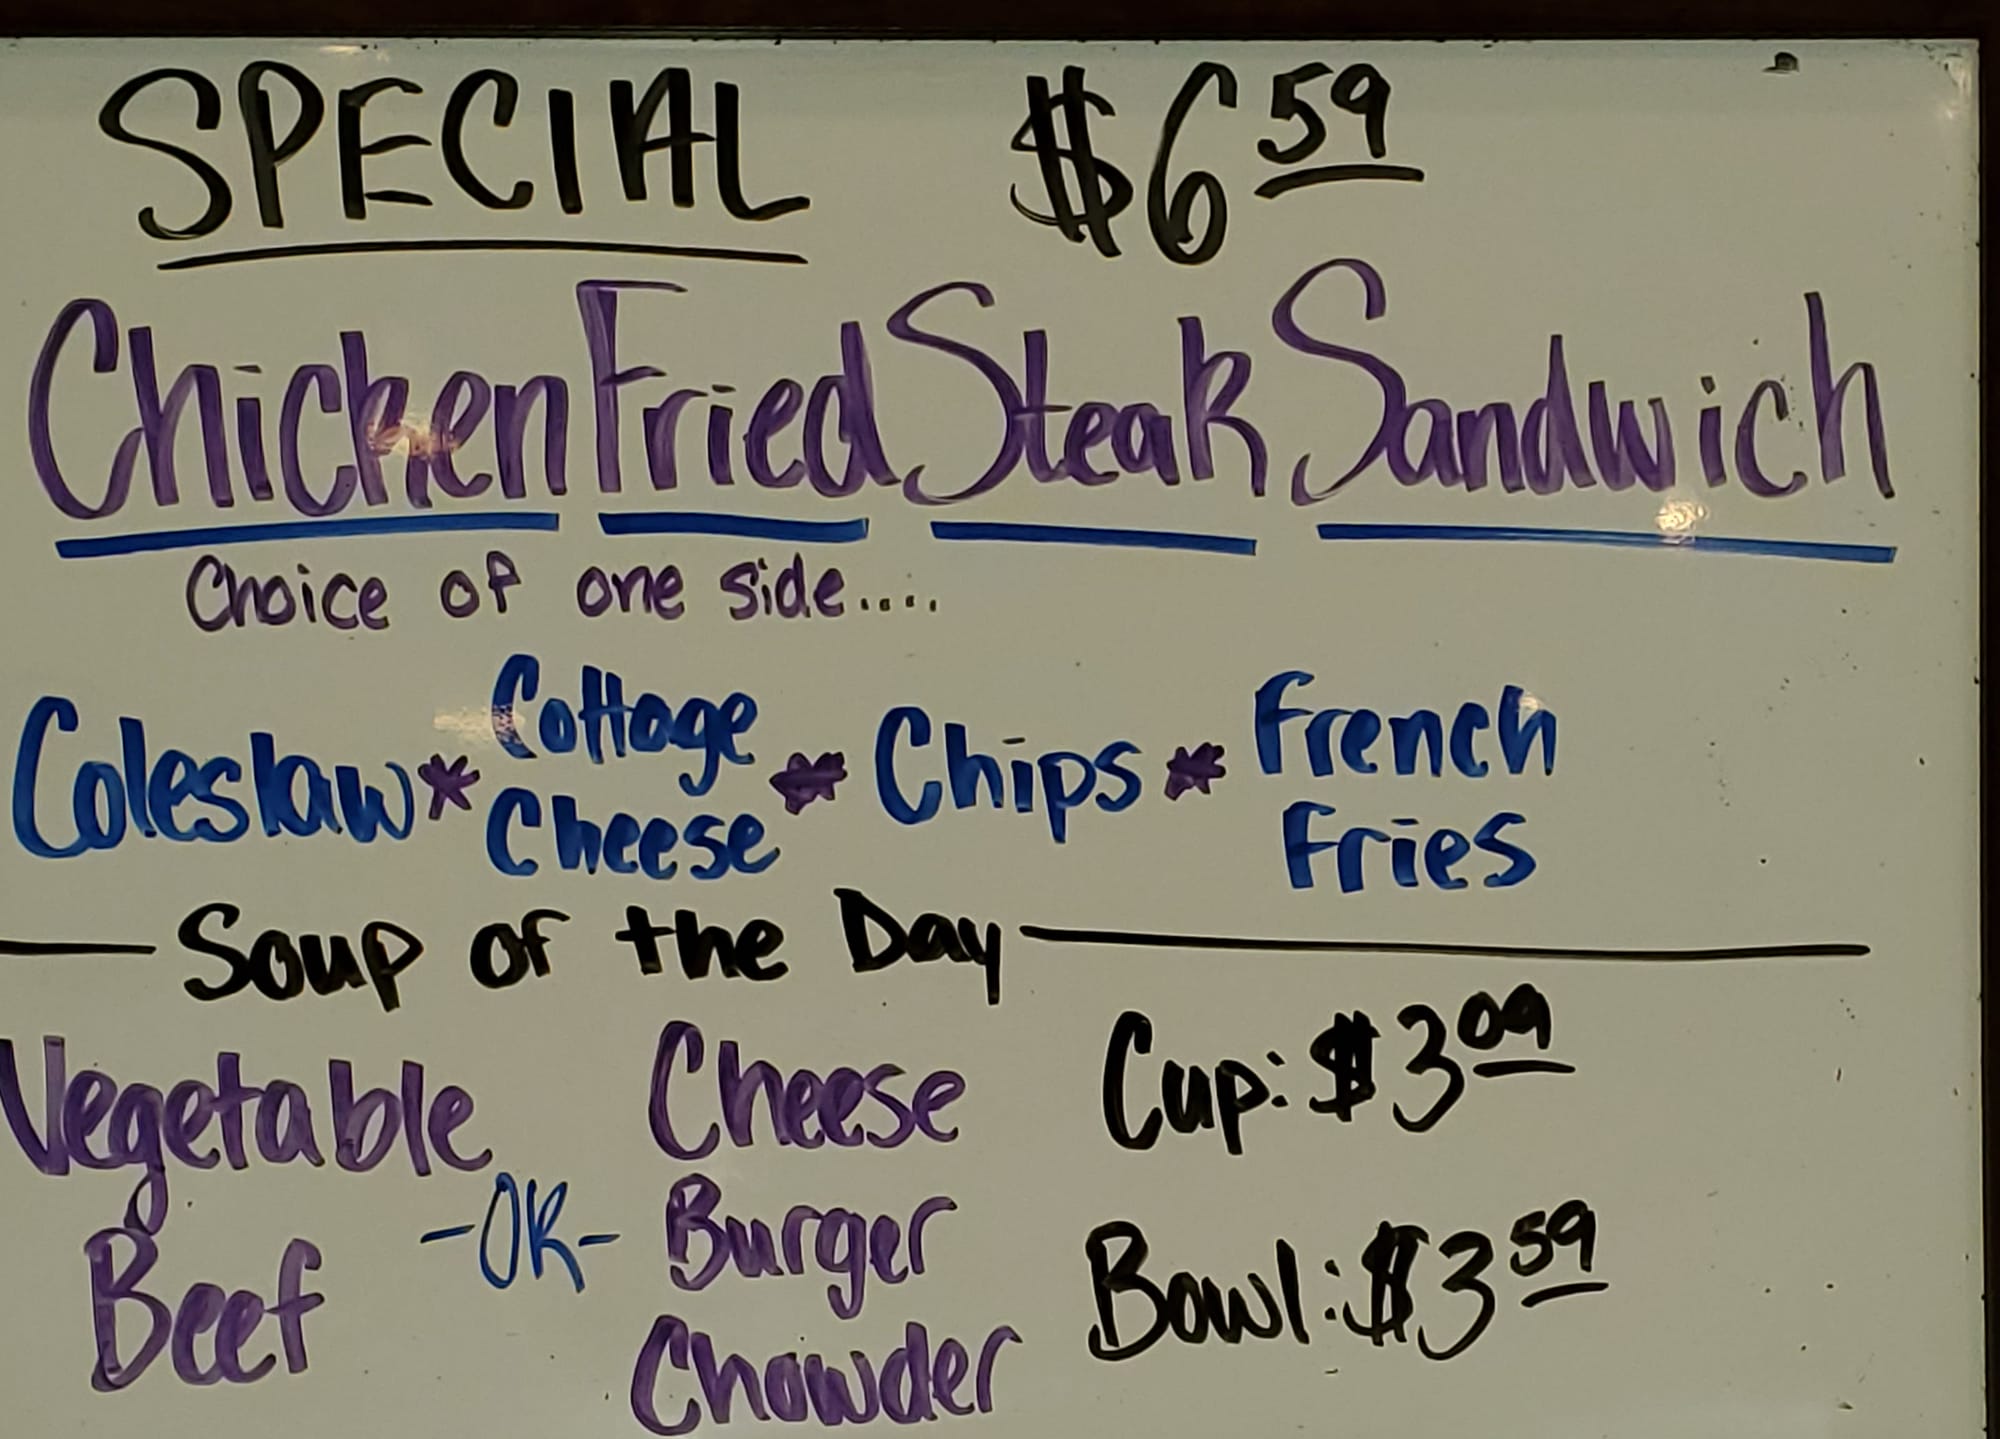 SPECIAL $6 59
Chicken Fried Steak Sandwich
Choice of one side....
Coleslaw * Cottage Cheese * Chips * French Fries
Soup of the Day
Vegetable Beef -OR- Cheese Burger Chowder
Cup: $3 09
Bowl: $3 59